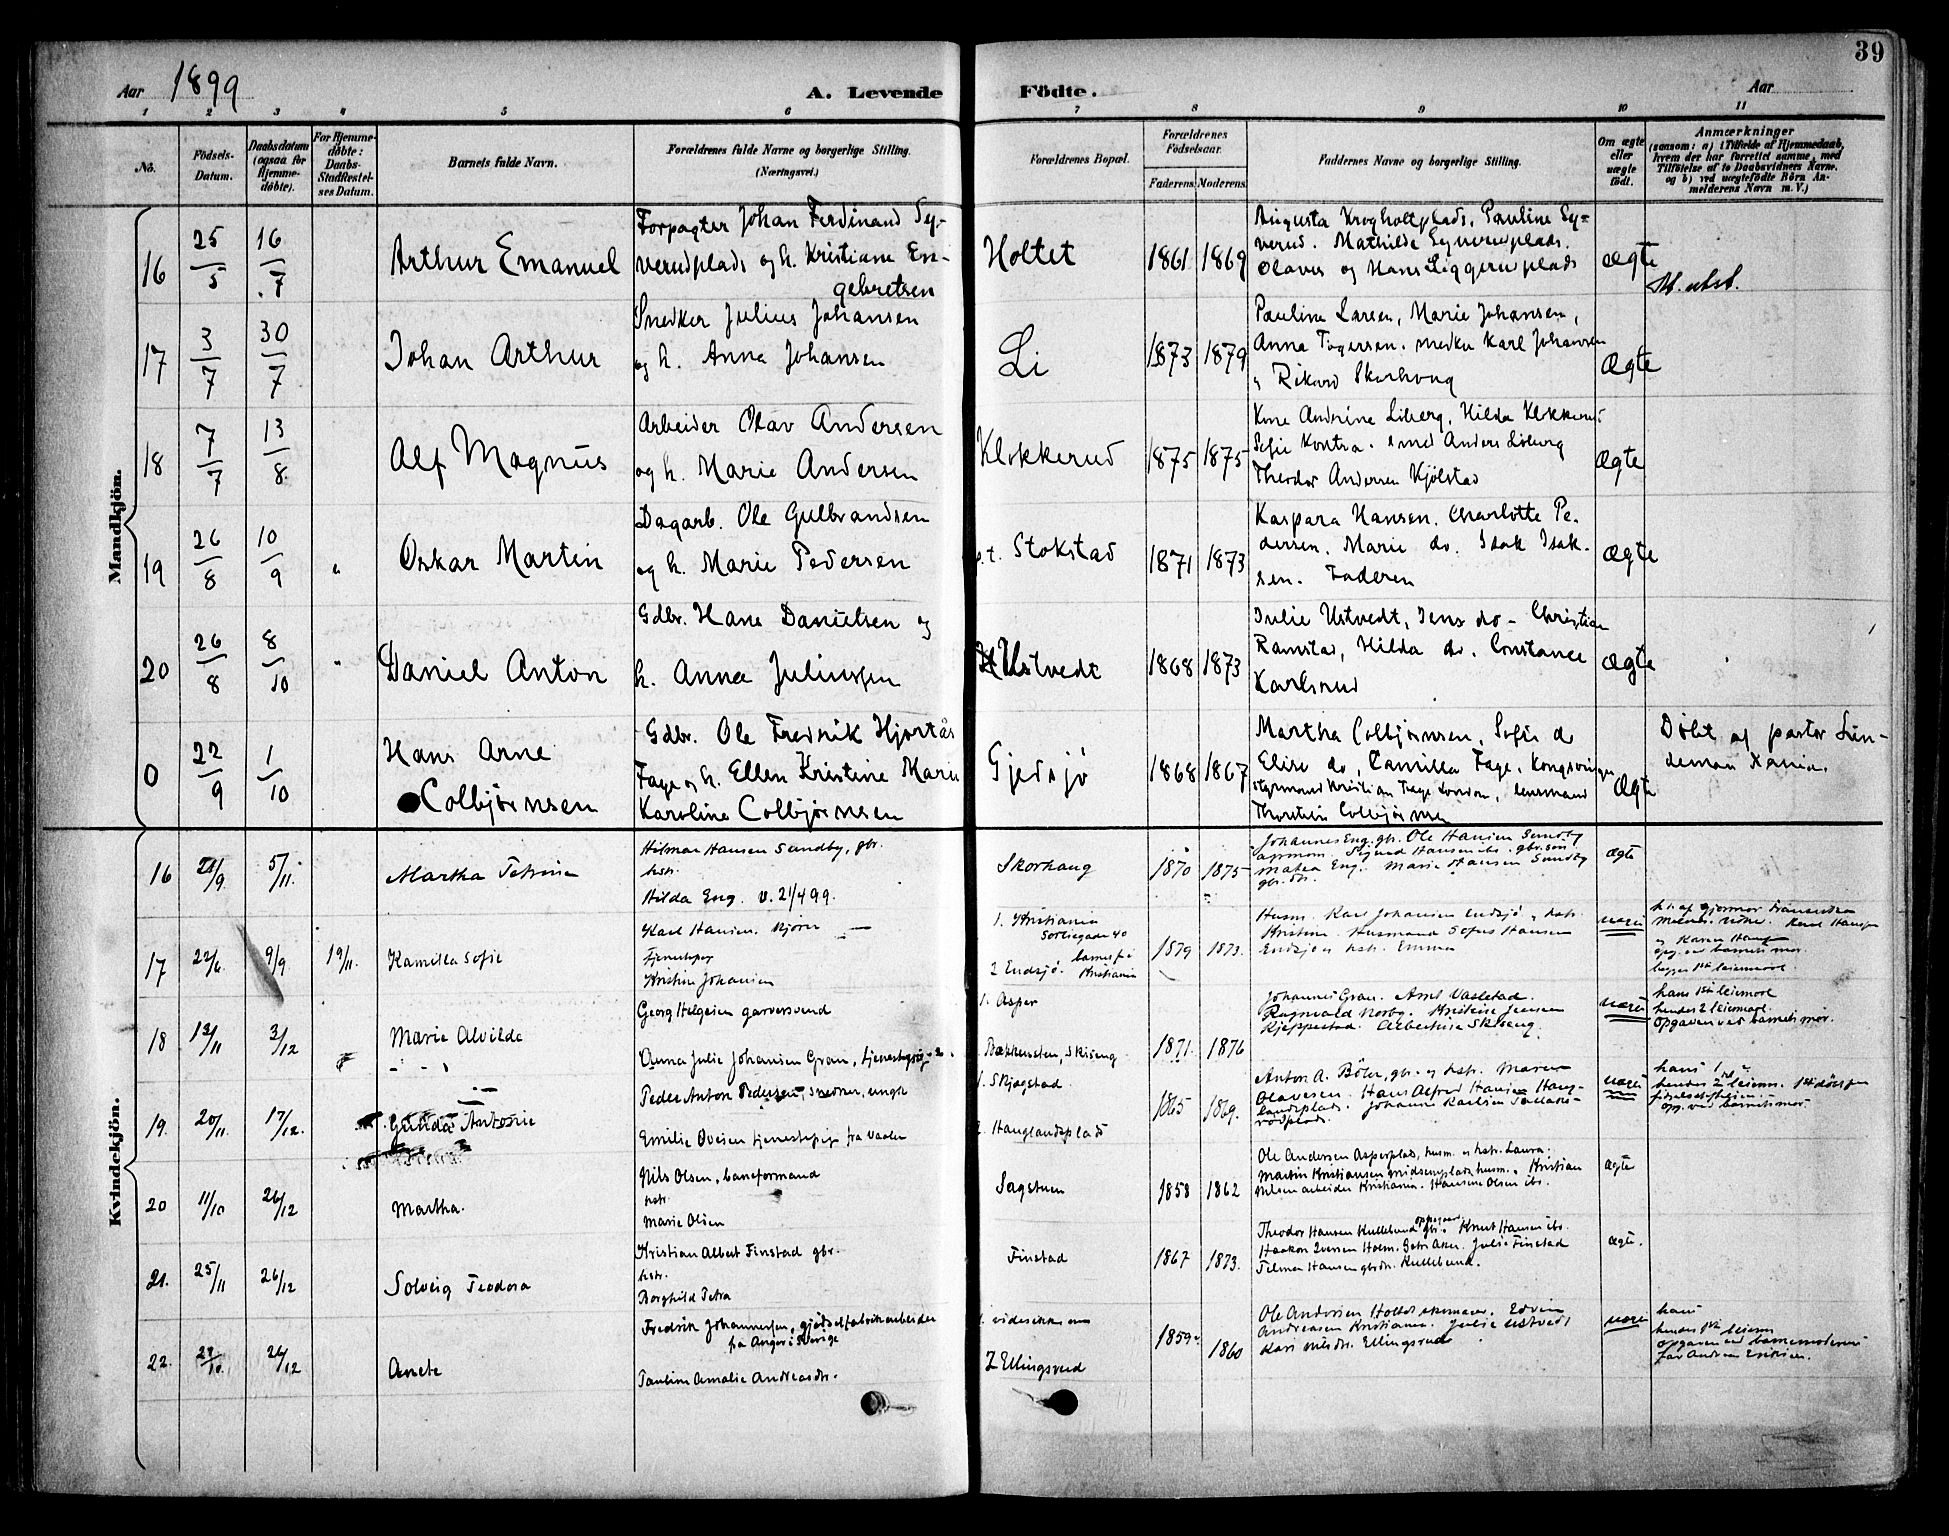 39
Aar 1899
A. Levende Födte.
Aar
1 2 3 4 5 6 7 8 9 10 11
No.
Födsels-Datum.
Daabsdatum (ogsaa for Hjemme-döbte).
For Hjemme-döbte: Daabs-Stadfæstelses Datum.
Barnets fulde Navn.
Forældrenes fulde Navne og borgerlige Stilling.
(Næringsvei.)
Forældrenes Bopæl.
Forældrenes Födselsaar.
Faderens Moderens
Faddernes Navne og borgerlige Stilling.
Om ægte eller uægte födt.
Anmærkninger
(saasom: a) i Tilfælde af Hjemmedaab, hvem der har forrettet samme, med Tilföielse af to Daabsvidners Navne, og b) ved uægtefödte Börn Anmelderens Navn m. V.)
Mandkjön.
16 25/5 16/7 Arthur Emanuel
Forpagter Johan Ferdinand Sy-
verudplads og h. Kristiane En-
gebretsen
Holtet 1861 1869
Augusta Krogholtplads, Pauline Sy-
verud. Mathilde Syverudplads.
Olaves og Hans Liggerudplads
ægte
17 3/7 30/7 Johan Arthur
Snedker Julius Johansen
og h. Anna Johansen
Li 1873 1879
Pauline Larsen, Marie Johansen,
Anna Togersen. snedker Karl Johansen
Rikard Skorhoug
Ægte
18 7/7 13/8 Alf Magnus
Arbeider Olav Andersen
og h. Marie Andersen
Klokkerud 1875 1875
Kone Andrine Liberg, Hilda Klokkerud
Sofie Kontra. smed Anders Liberg
Theodor Andersen Kjølstad
Ægte
19 26/8 10/9 "
Oskar Martin
Dagarb. Ole Gulbrandsen
og h. Marie Pedersen
p.t. Stokstad 1871 1873
Kaspara Hansen. Charlotte Pe-
dersen. Marie do. Isak Isak-
sen. Faderen
Ægte
20 26/8 8/10 "
Daniel Anton
Gdbr. Hans Danielsen og
h. Anna Juliussen
Ustvedt 1868 1873
Julie Ustvedt, Jens do - Christian
Ramstad, Hilda do. Constance
Karlsrud
Ægte
0 22/9 1/10
Hans Arne
Colbjørnsen
Gdbr. Ole Fredrik Hjortås
Fage og h. Ellen Kristine Marie
Karoline Colbjørnsen
Gjedsjø 1868 1867
Martha Colbjørnsen, Sofie do
Elise do, Camilla Fage, Kongsvinger
styrmand Kristian Fage London, lensmand
Thorstein Colbjørnsen
Ægte
Døbt af pastor Lin-
deman Xania.
Kvindekjön.
16 5/11. Martha Petrine
Hilmar Hansen Sundby, gbr.
hstr.
Hilda Eng. v. 21/4 99.
Skorhaug 1870 1875
Johannes Eng. gbr. Ole Hansen Sundby
Sigurd Hansen ibs. gbr.søn
Matea Eng. Marie Hansen Sundby
gbr.dtr.
ægte
17 22/6. 9/9 19/11. Kamilla Sofie
Karl Hansen, kjører
tjenestepige
Kristine Johansen
1. Kristiania
Sorliegade 40
2 Endsjø. barnet f. i Kristiania
1879 1873.
Husm. Karl Johansen Endsjø, hstr.
Kristine. Husmand Sofus Hansen
Endsjø og hstr. Emma
uægte
18 13/11 3/12 Marie Alvilde
Georg Helgesen garversvend
Anna Julie Johansen Gran, tjenestepige
1. Asper
Bækkensten, Skiseng
1871. 1876
Johannes Gran. Arnt Vasletad.
Ragnvald Norby. Kristine Jensen
Kjeppestad. Albertine Skiseng.
uægte
hans 1ste leiermol
hendes 2 leiermol.
opgaven ved barnets mor.
19. 20/11. 17/12. Gunda Antonie
Peder Anton Pedersen, snedker, ungk.
Emilie Ovesen tjenestepige fra Vaaler
1. Skjøgstad.
2. Hauglandsplads
1865 1869.
Anton A. Böler, gbr. og hstr. Maren
Olavesen. Hans Alfred Hansen Haug-
landsplads. Johanne Karlsen
uægte
hans 1
hendes 2 leierm.
opg. ved barnets mor.
20 11/10 26/12 Martha.
Nils Olsen, baneformand
hstr.
Marie Olsen
Sagstuen 1858 1862
Ole Andersen Asperplads, husm. og hstr. Laura.
Martin Kristiansen husm. Kristian
Nilsen arbeider Kristiania. Hansine Olsen ibs.
ægte
21. 25/11 26/12 Solveig Teodora
Kristian Albert Finstad gbr.
hstr.
Borghild Petra
Finstad 1867 1873.
Theodor Hansen Kullebund gbr. oppegaard Knut Hansen ibs.
Haakon Iversen Holm. Aker. Julie Finstad
Tilma Hansen gbrdtr. Kullebund.
ægte.
22. 26/12 Anete
Fredrik Johannessen, gjødselfabrikarbeider
fra Anger i Sverige
Pauline Amalie Andreasdtr.
1. vides ikke
2 Ellingsrud
1859. 1860
Ole Andersen Holtet skomager. Edvin
Andreasen Kristiania. Julie Ustvedt
Kari Nilsdtr. Ellingsrud
uægte
hans
hendes 1ste leierm
opgaven ved barnemoderens
far Andreas Eriksen.